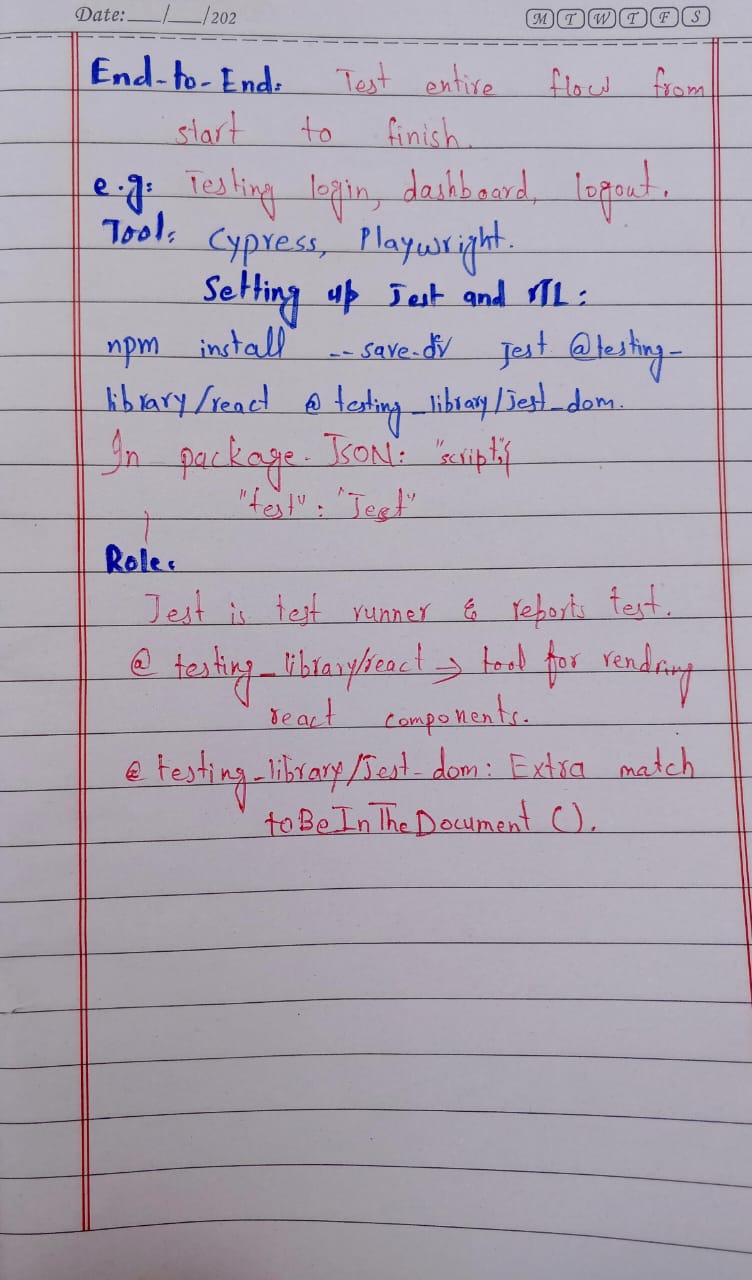 Date:__/__/202 M T W T F S
End-to-End: Test entire flow from
start to finish.
e.g: Testing login, dashboard, logout.
Tool: Cypress, Playwright.
Setting up Jest and RTL:
npm install --save-dv jest @testing-
library/react @testing_library/jest_dom.
In package.JSON: "script":{
"test": "Jest"
}
Role:
Jest is test runner & reports test.
@testing_library/react → tool for rendring
react components.
@testing_library/Jest-dom: Extra match
toBeInTheDocument().